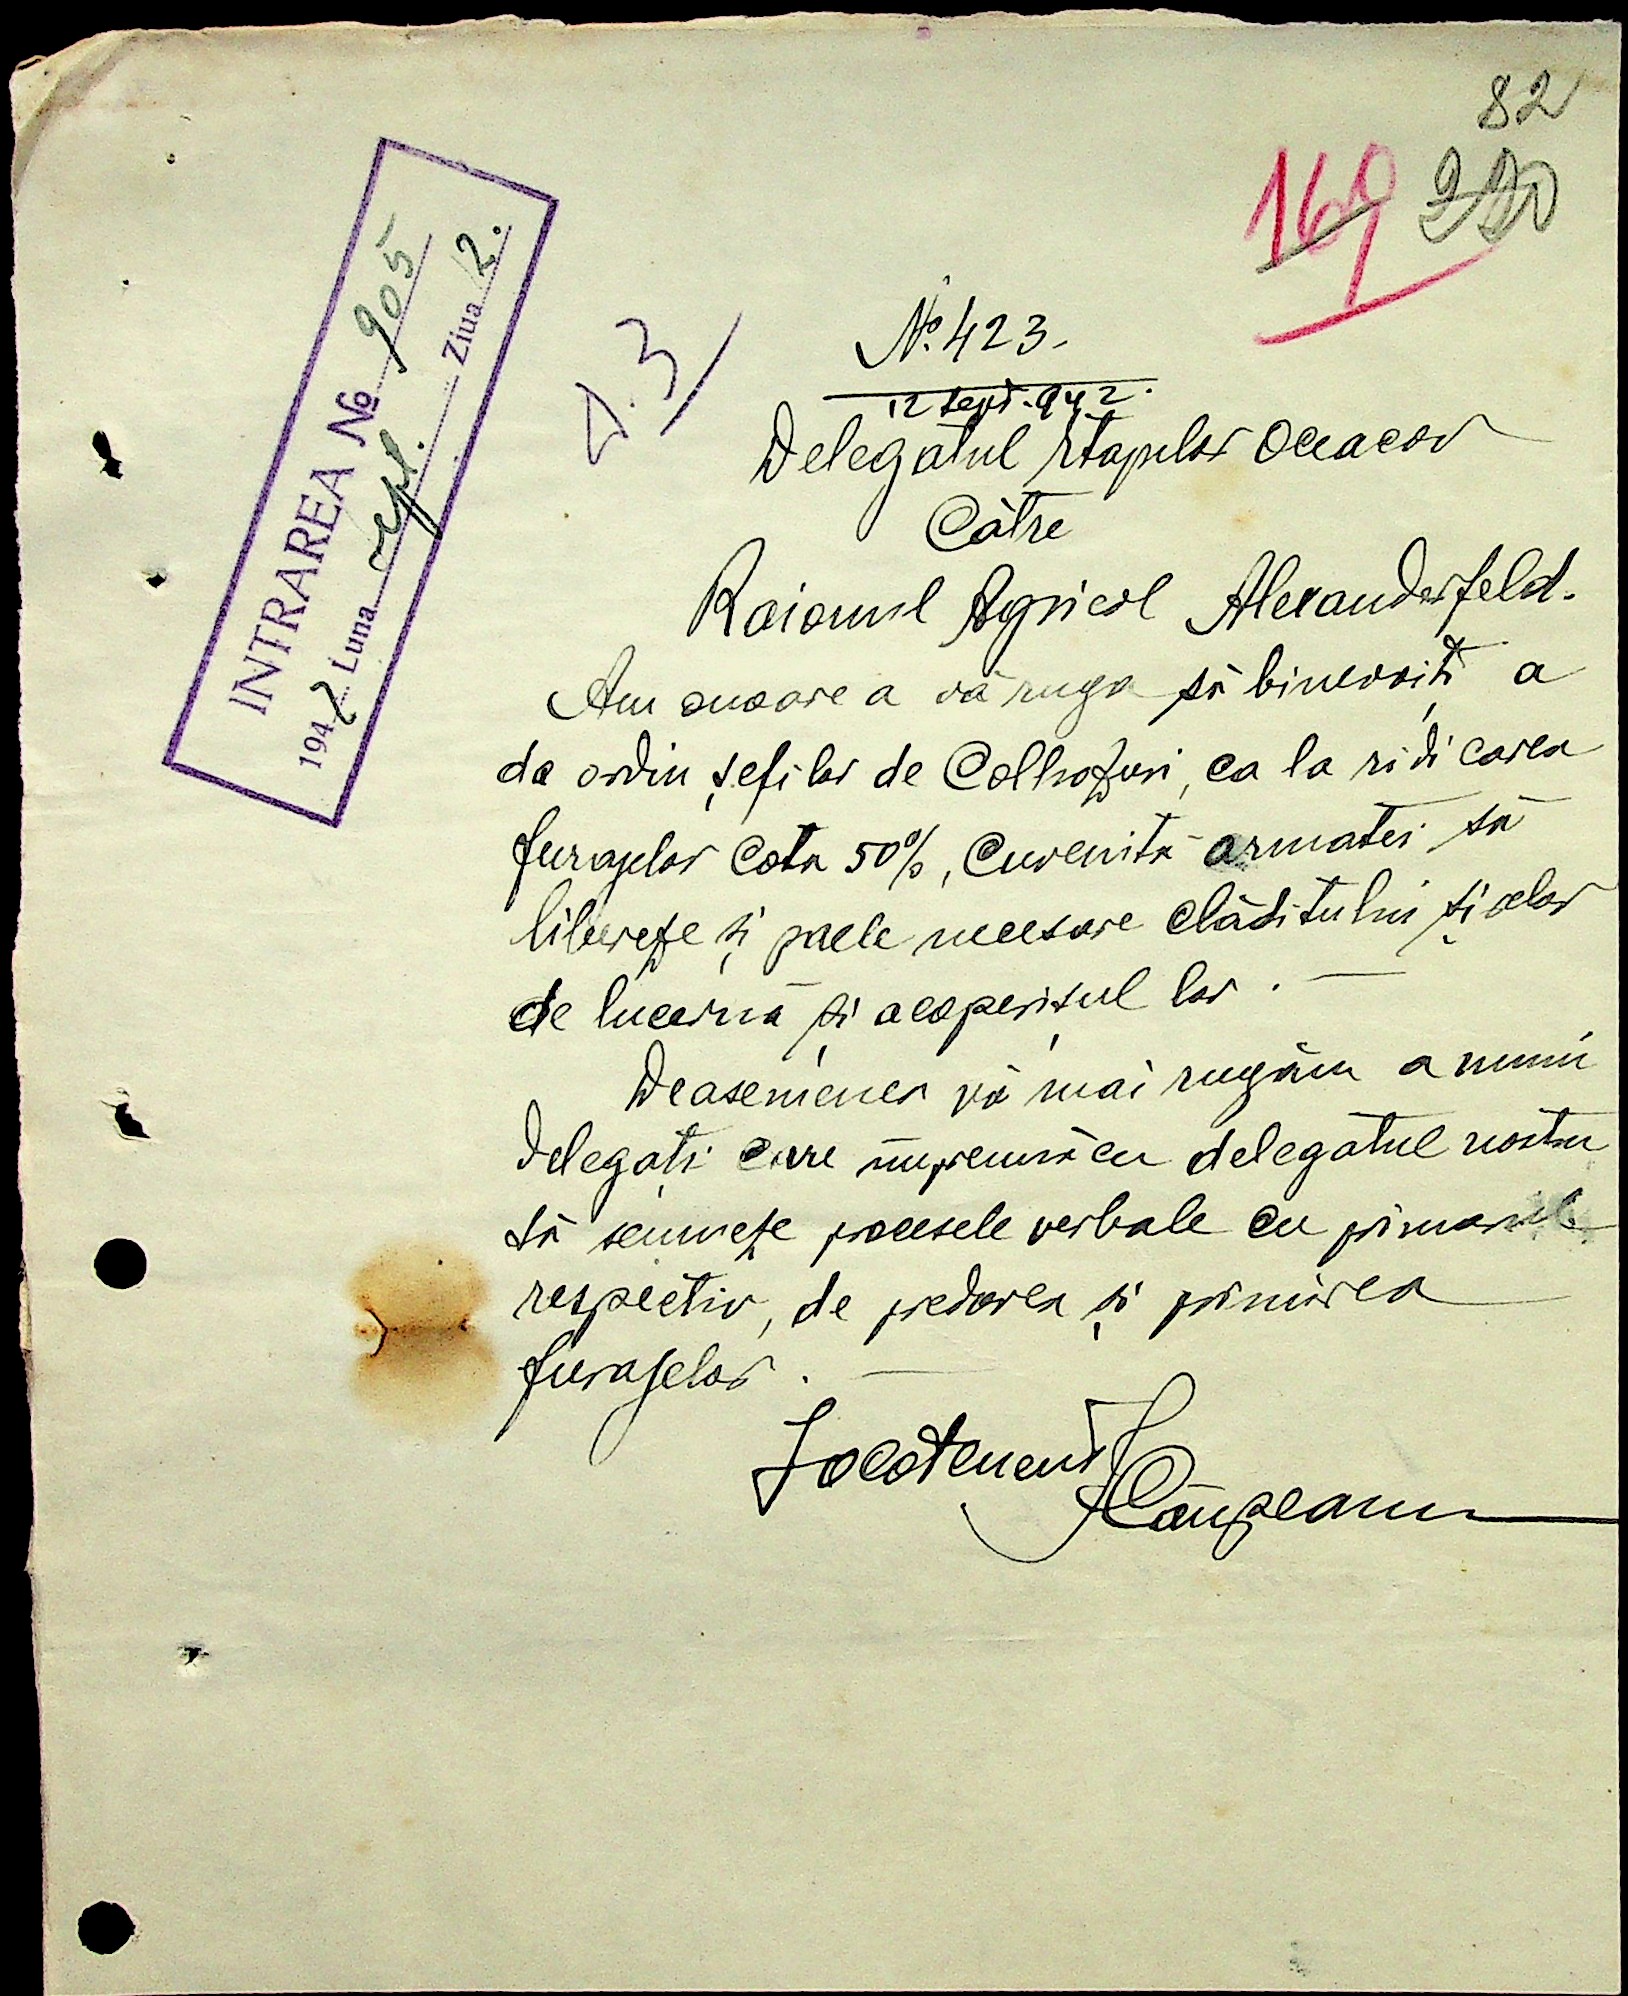 82
169 220
INTRAREA № 905
1942 Luna sept. Ziua 12.
D.3
No. 423.
12 sept. 942.
Delegatul Etapelor Oceacov
Către
Raionul Agricol Alexanderfeld.
Am onoare a vă ruga să binevoiți a
da ordin șefilor de Colhozuri, ca la ridicarea
furajelor cota 50%, cuvenită armatei să
libereze și paele necesare clăditului și celor
de lucernă și acoperișul lor. —
Deasemenea vă mai rugăm a numi
delegați care împreună cu delegatul nostru
să semneze procesele verbale cu primarul
respectiv, de predarea și primirea
furajelor. —
Locotenent
Câmpeanu